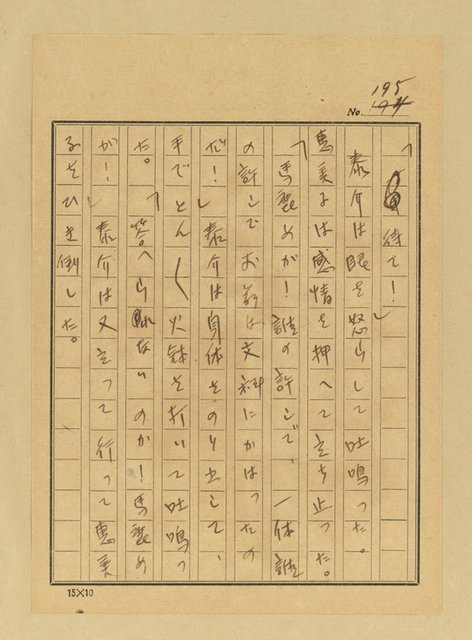 No. 195
「待て!」
泰介は眼を怒らして吐鳴った。
恵美子は感情を押へて立ち止った。
「馬鹿めが!誰の許しで、一体誰
の許しでお前は文科にかはったの
だ!」泰介は身体をのり出して、
手でとん〱火鉢を打いて吐鳴っ
た。「答へられないのか!馬鹿め
が!」泰介は又立って行って恵美
子をひき倒した。
15×10